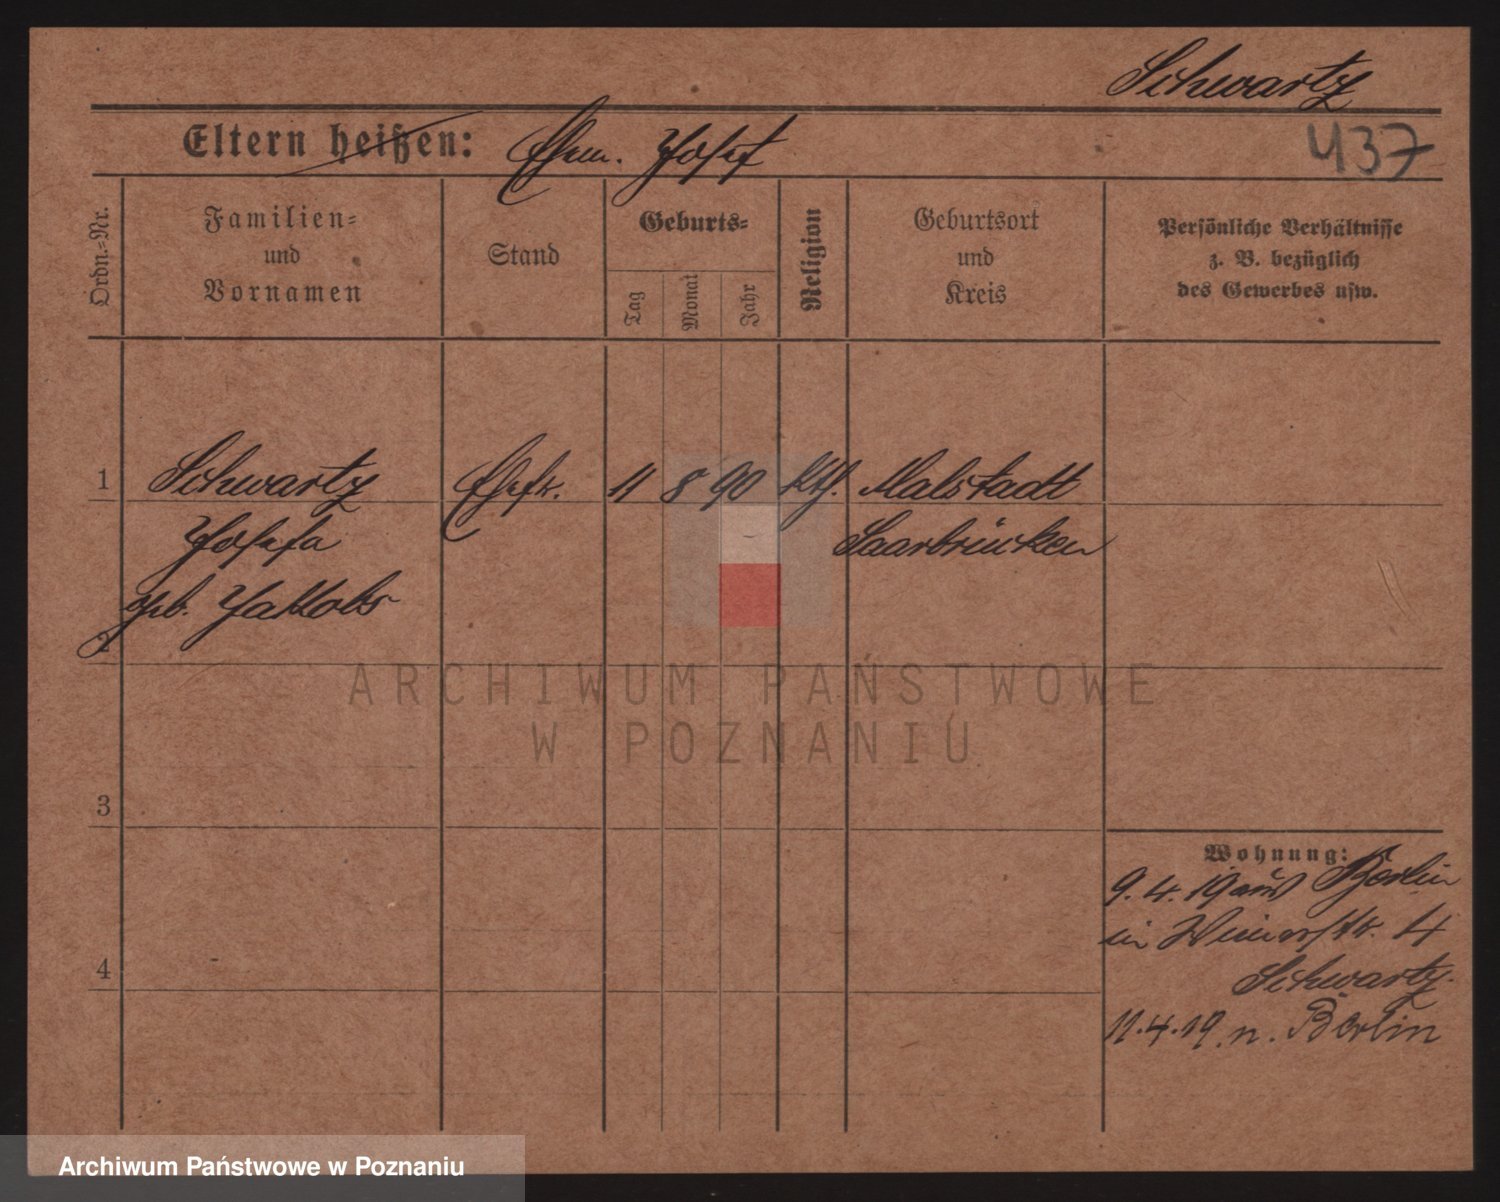 Schwartz
437
Eltern heißen: Ehem. Josef
Ordn.-Nr.
Familien- und Vornamen
Stand
Geburts-
Tag
Monat
Jahr
Religion
Geburtsort und Kreis
Persönliche Verhältnisse
z. B. bezüglich
des Gewerbes usw.
1 Schwartz Ehefr. 11 8 90 kth. Malstadt
Josefa Saarbrücken
geb. Jakobs
2
3
4
Wohnung:
9.4.19 aus Berlin
in 4
Schwartz.
11.4.19. n. Berlin
ARCHIWUM PAŃSTWOWE
W POZNANIU
Archiwum Państwowe w Poznaniu